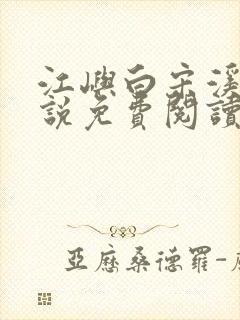 江嶼白宋溪
説免費閱讀
亞歷桑德羅-